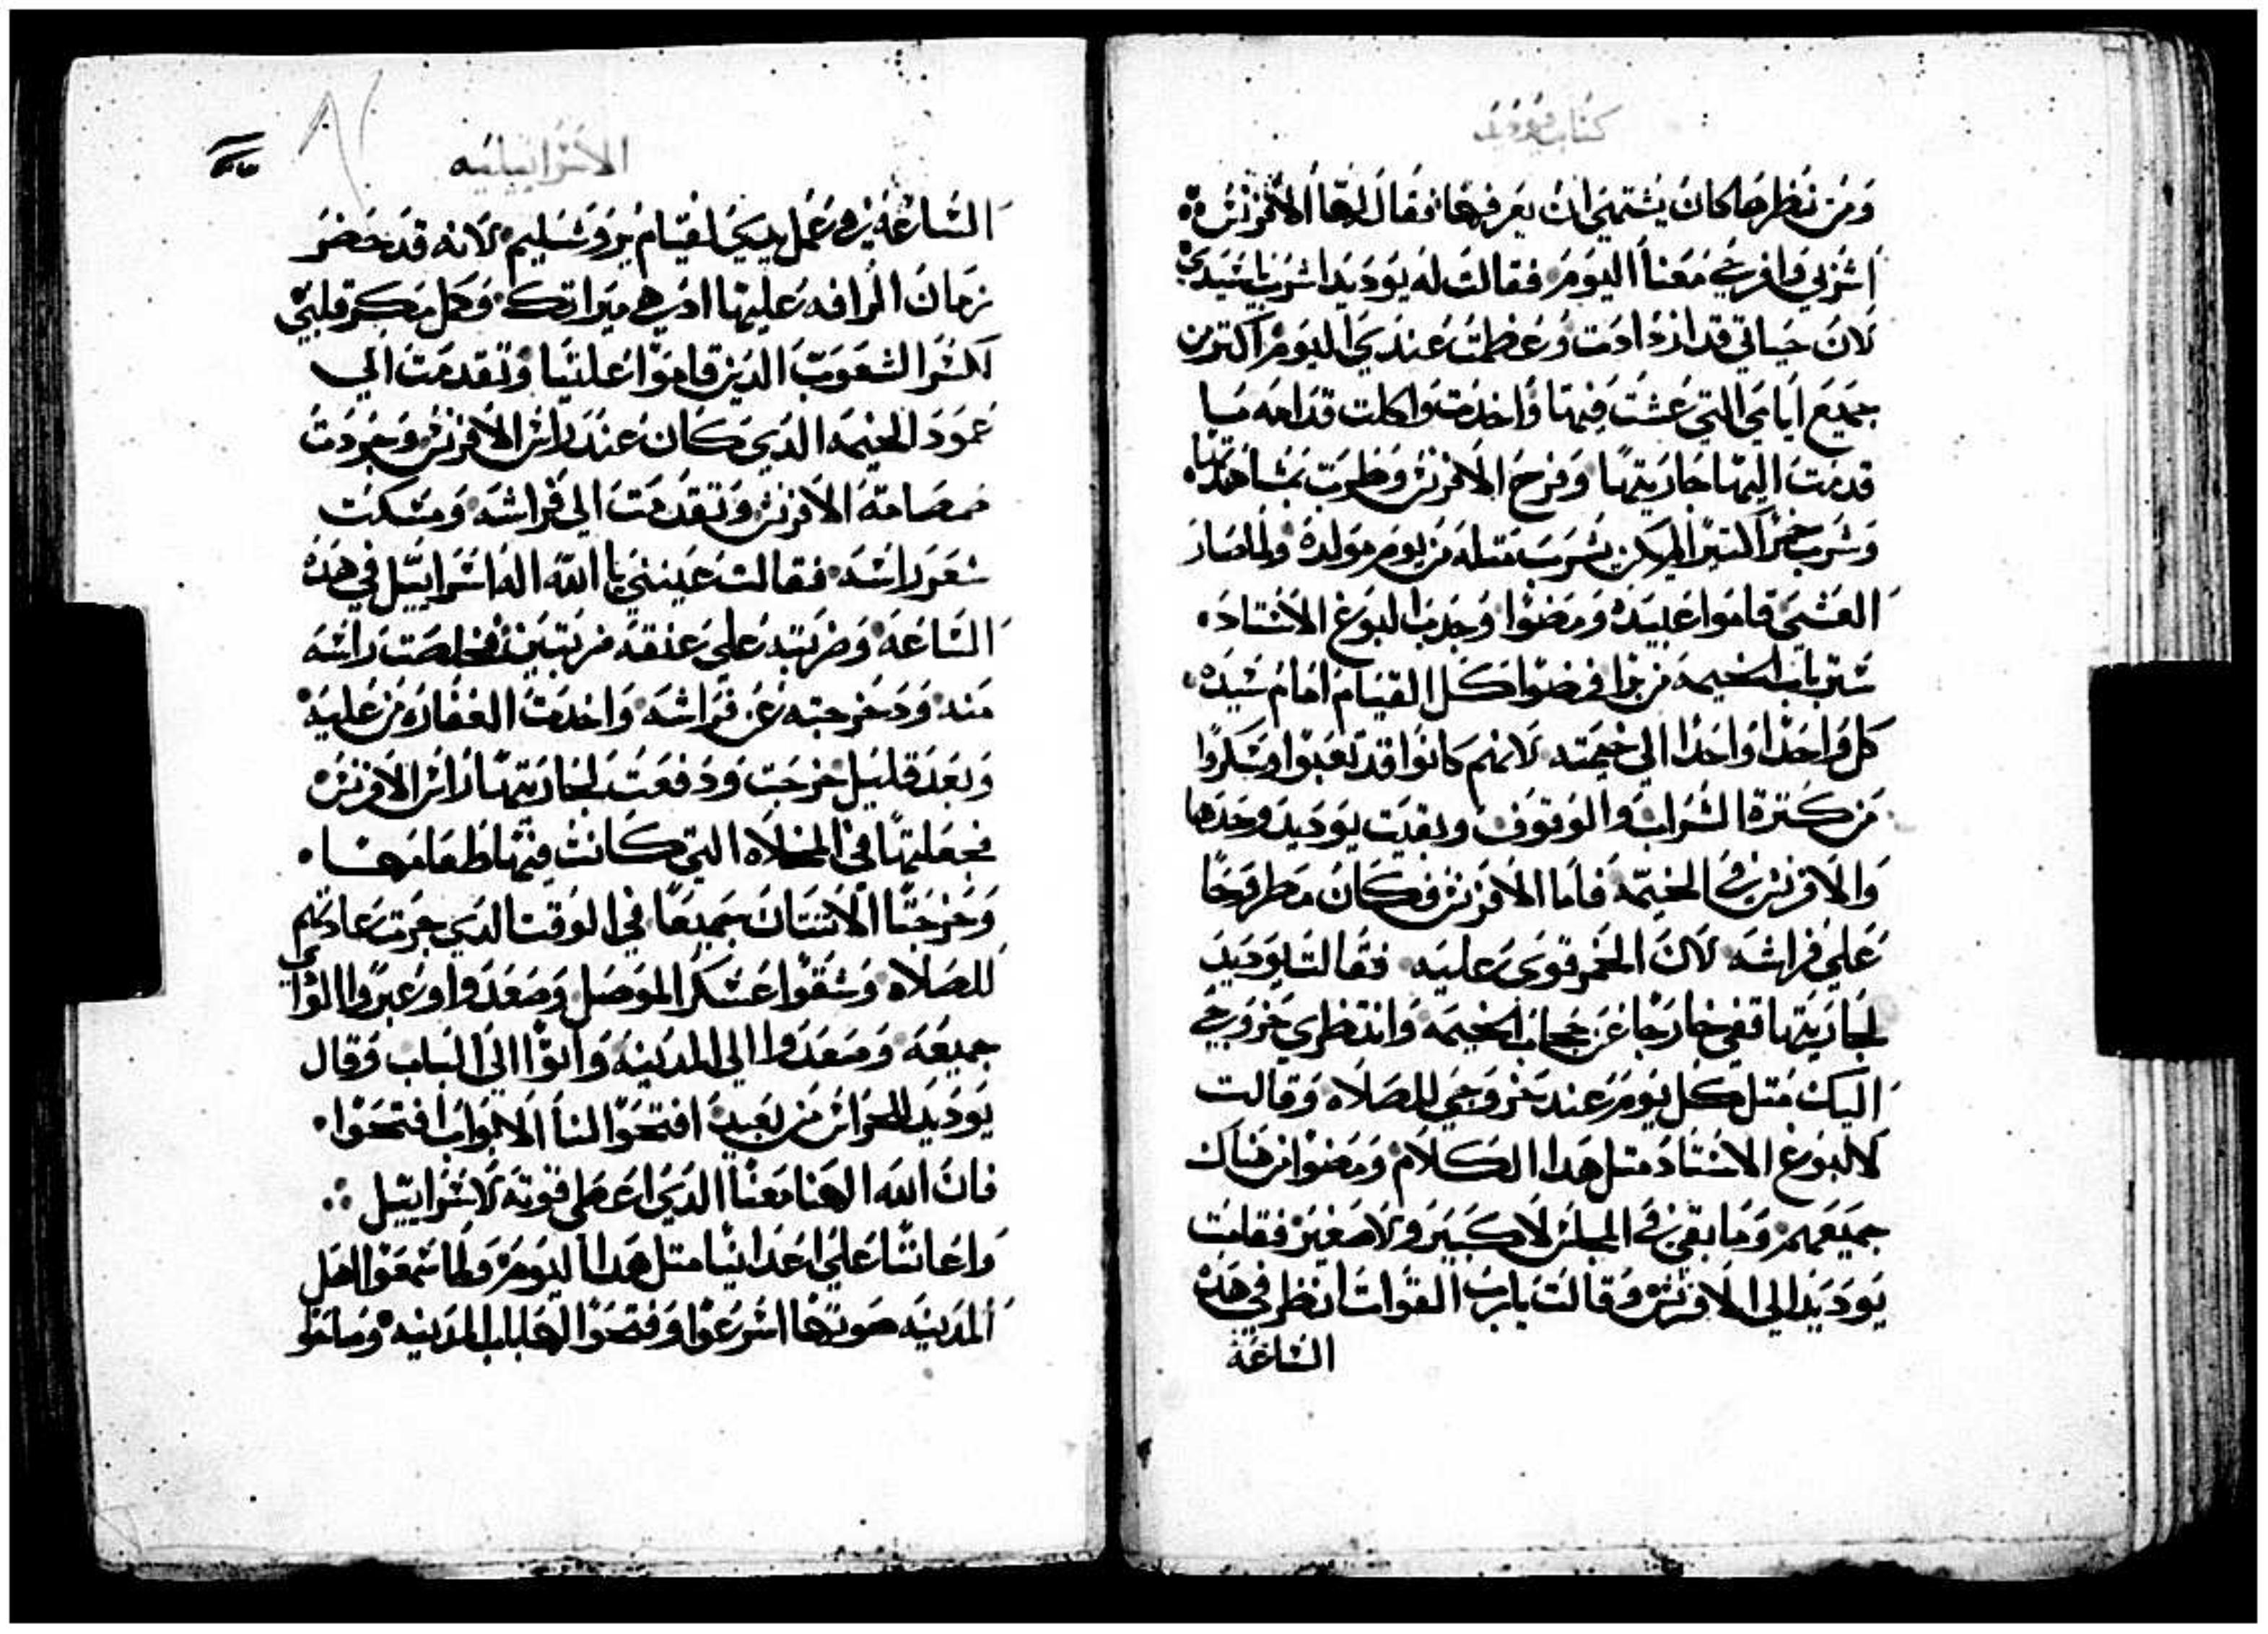 كتاب يوديد
ومن نظرها كان يشتهي ان يعرفها فقال لها الافرنس
اشربي وافرحي معنا اليوم فقالت له يوديد اشرب يا سيدي
لان حياتي قد ازدادت وعظمت عندي اليوم اكتر من
جميع ايامي التي عشت فيها واخدت واكلت قدامه ما
قدمت اليها جاريتها وفرح الافرنس وطرب بمشاهدتها
وشرب خمرا كتيرا لم يكن يشرب متله من يوم مولده ولما صار
العشي قاموا عبيده ومضوا وجدب البوغ الاستاد
ستر باب الخيمه من برا فرضوا كل القيام امام سيده
كل واحدا واحدا الي خيمته لانهم كانوا قد تعبوا وسكروا
من كترة الشراب والوقوف وبقيت يوديد وحدها
والافرنس في الخيمه فاما الافرنس فكان مطروحا
علي فراشه لان الخمر قوي عليه فقالت يوديد
لجاريتها قفي خارجا عن حجاب الخيمه وانتظري خروجي
اليك متل كل يوم عند خروجي للصلاه وقالت
لالبوغ الاستاد متل هدا الكلام ومضوا من هناك
جميعهم وما بقي في المجلس لا كبير ولا صغير فقامت
يوديد الي الافرنس وقالت يا رب القوات انظر في هده
الساعة
الاسراييليه
الساعة في عمل يدي لقيام يروشليم لانه قد حضر
زمان الرافه عليها ادهي ميراتك وكل مكر قلبي
لكسر الشعوب الدين قاموا علينا وتقدمت الي
عمود الخيمه الدي كان عند راس الافرنس وجردت
صمصامة الافرنس وتقدمت الي فراشه ومسكت
شعر راسه فقالت عينني يا الله اله اسراييل في هده
الساعه وضربته علي عنقه ضربتين فخلصت راسه
منه ودخرجته عن فراشه واخدت الغفاره من عليه
وبعد قليل خرجت ودفعت لجاريتها راس الافرنس
فجعلتها في المخلاه التي كانت فيها طعامها
وخرجتا الاتنتان جميعا في الوقت الدي جرت عادتهم
للصلاه وشقوا عسكر الموصل وصعدوا وعبروا الوادي
جميعه وصعدوا الي المدينه واتوا الي الباب وقال
يوديد للحراس من بعيد افتحوا لنا الابواب افتحوا
فان الله الهنا معنا الدي اعطي قوته لاسراييل
واعاننا علي اعداينا متل هدا اليوم ولما سمعوا اهل
المدينه صوتها اسرعوا وفتحوا لها باب المدينه